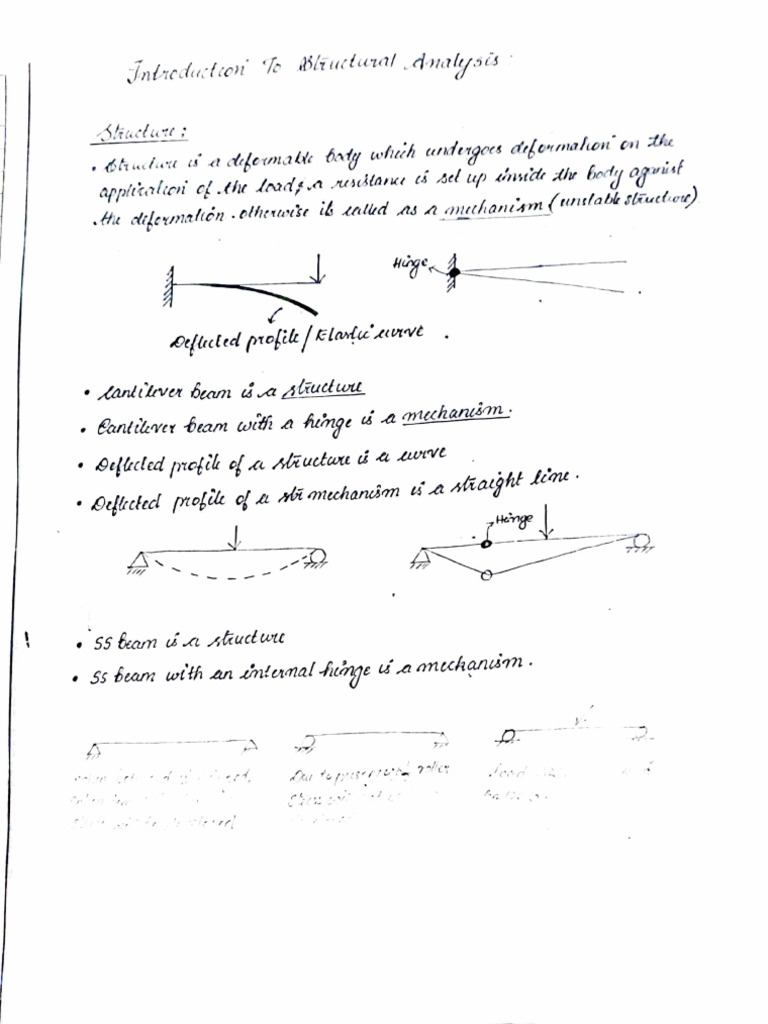 Introduction To Structural Analysis:
Structure:
• Structure is a deformable body which undergoes deformation on the
application of the load & a resistance is set up inside the body aganist
the deformation. otherwise it's called as a mechanism (unstable structure)
Hinge
Deflected profile / Elastic curve.
• Cantilever beam is a structure
• Cantilever beam with a hinge is a mechanism.
• Deflected profile of a structure is a curve
• Deflected profile of a str mechanism is a straight line.
Hinge
• SS beam is a structure
• SS beam with an internal hinge is a mechanism.
Due to presence of roller
load